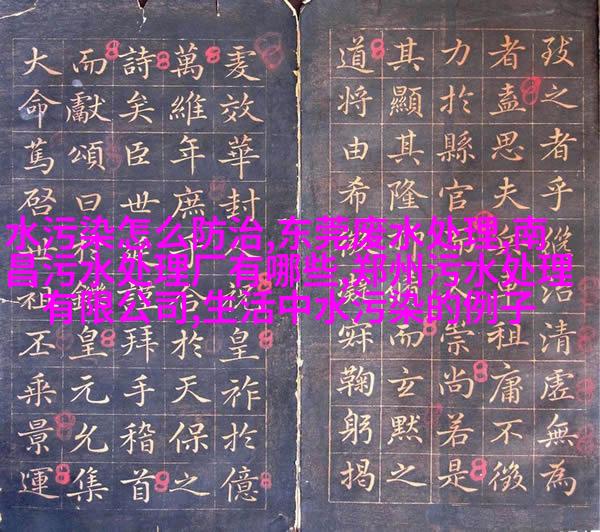 之者乎清虛無為
者盍思夫祖庸不
力於縣官崇尚若是
其顯其隆而玄默之
道將由希凝寂鞠躬揭
夏效華封皇祚於億
萬維年庶於天保之
詩矣臣世拜手稽首
而獻頌曰於皇元允集
大命篤啓世祖丕乘景運
水污染怎么防治,东莞废水处理,南
昌污水处理厂有哪些,郑州污水处理
有限公司,生活中水污染的例子